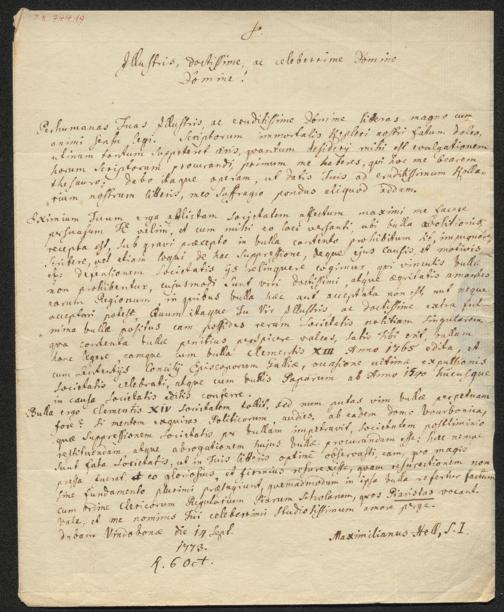 Illustris, doctissime, ac celeberrime Domine
Domine!
Perhumanas Tuas Illustris, ac eruditissime Domine litteras magno cum
animi sensu legi. Scriptorum immortalis Kepleri nostri fatum doleo,
utinam tantum suppeteret aeris, quantum desiderij mihi est evulgationem
horum Scriptorum procurandi, primum me haberes, qui hoc me bearem
thesauro; debo itaque operam, ut datis suis ad eruditissimum Kolla-
rium, nostrum litteris, meo suffragio pondus aliquod addam.
Eximium Tuum erga afflictam Societatem affectum maximi me facere
persuasum Te velim, et cum mihi eo loci versanti, ubi bulla abolitionis
recepta est, sub gravi praecepto in bulla contento prohibitum sit,
scribere, vel etiam loqui de hac suppressione, deque ejus causis, et motivis
ejus defensionem Societatis ijs relinquere cogimur qui vinculis bullae
non prohibentur, cujusmodi sunt viri doctissimi, atque aequitatis amantes
earum Regionum in quibus bulla haec aut acceptata non est, aut neque
acceptari potest. Quum itaque Tu Vir Illustris, ac doctissime extra ful-
mina bullae positus cum possideas rerum Societatis notitiam singularem
qua contenta bullae penitius perspicere valeas, satis Tibi erit bullam
hanc legere, eamque cum bulla Clementis XIII Anno 1765 edita, et
cum sententijs Concilij Episcoporum Galliae, occasione ultima expulsionis
Societatis celebrati, atque cum bullis Paparum ab Anno 1540 hucusque
in causa Societatis editis conferre.
Bulla ergo Clementis XIV Societatem tollit, sed num putas vim bullae perpetuam
fore? Si mentem exquiras Politicorum, audies, ab eadem domo Bourbonica,
quae suppressionem Societatis per bullam impetravit, Societatem postliminio
restituendam, atque abrogationem hujus bullae procurandam esse; haec nempe
sunt fata Societatis, ut in suis litteris optime observasti, eam, quo magis
pressa fuerat eo gloriosius, et firmius resurrexisse, quam resurrectionem non
sine fundamento plurimi praesagiunt, quemadmodum in ipsa bulla refertur factum
cum ordine Clericorum Regularium Piarum Scholarum, quos Piaristas vocant.
Vale, et me nominis Tui celeberrimi studiosissimum amare perge.
dabam Vindobonae die 14 Sept.
1773.
R. 6 Oct.
Maximilianus Hell, S. I.